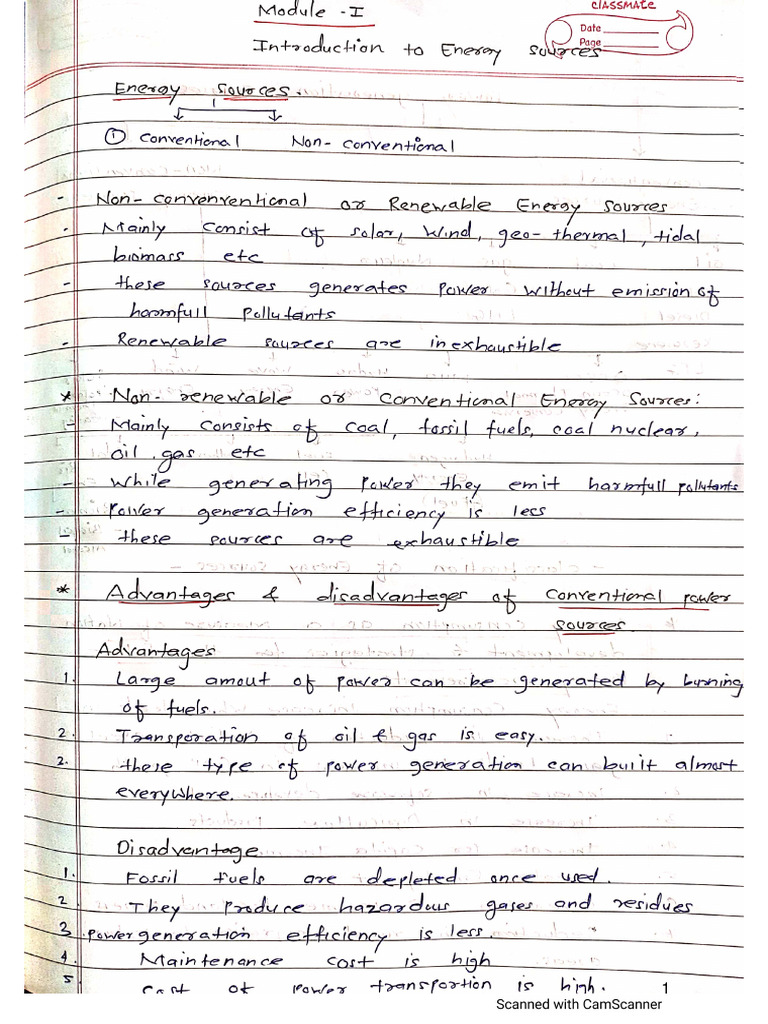 Module - I
classmate
Date
Page
Introduction to Energy sources
Energy Sources.
① Conventional Non-conventional
- Non-convenventional or Renewable Energy Sources
- Mainly consist of solar, wind, geo-thermal, tidal
biomass etc
- these sources generates power without emission of
harmfull pollutants
- Renewable sources are inexhaustible
* Non-renewable or conventional Energy Sources:
- Mainly consists of coal, fossil fuels, coal nuclear,
oil, gas etc
- While generating power they emit harmfull pollutants
- Power generation efficiency is less
- these sources are exhaustible
* Advantages & disadvantages of conventional power
sources.
Advantages
1. Large amout of power can be generated by burning
of fuels.
2. Transporation of oil & gas is easy.
2. these type of power generation can built almost
everywhere.
Disadvantage
1. Fossil fuels are depleted once used.
2 They produce hazardus gases and residues
3 power generation efficiency is less.
4. Maintenance cost is high
5 cost of power transportion is high. 1
Scanned with CamScanner